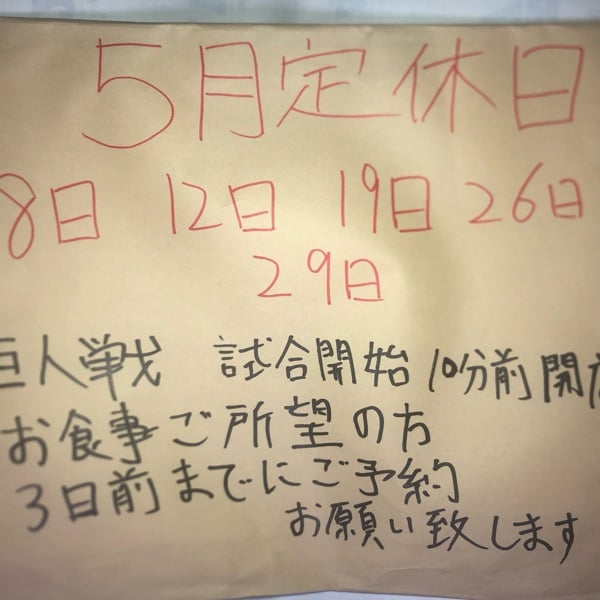 5月定休日
8日 12日 19日 26日
29日
巨人戦 試合開始10分前開店
お食事ご所望の方
3日前までにご予約
お願い致します